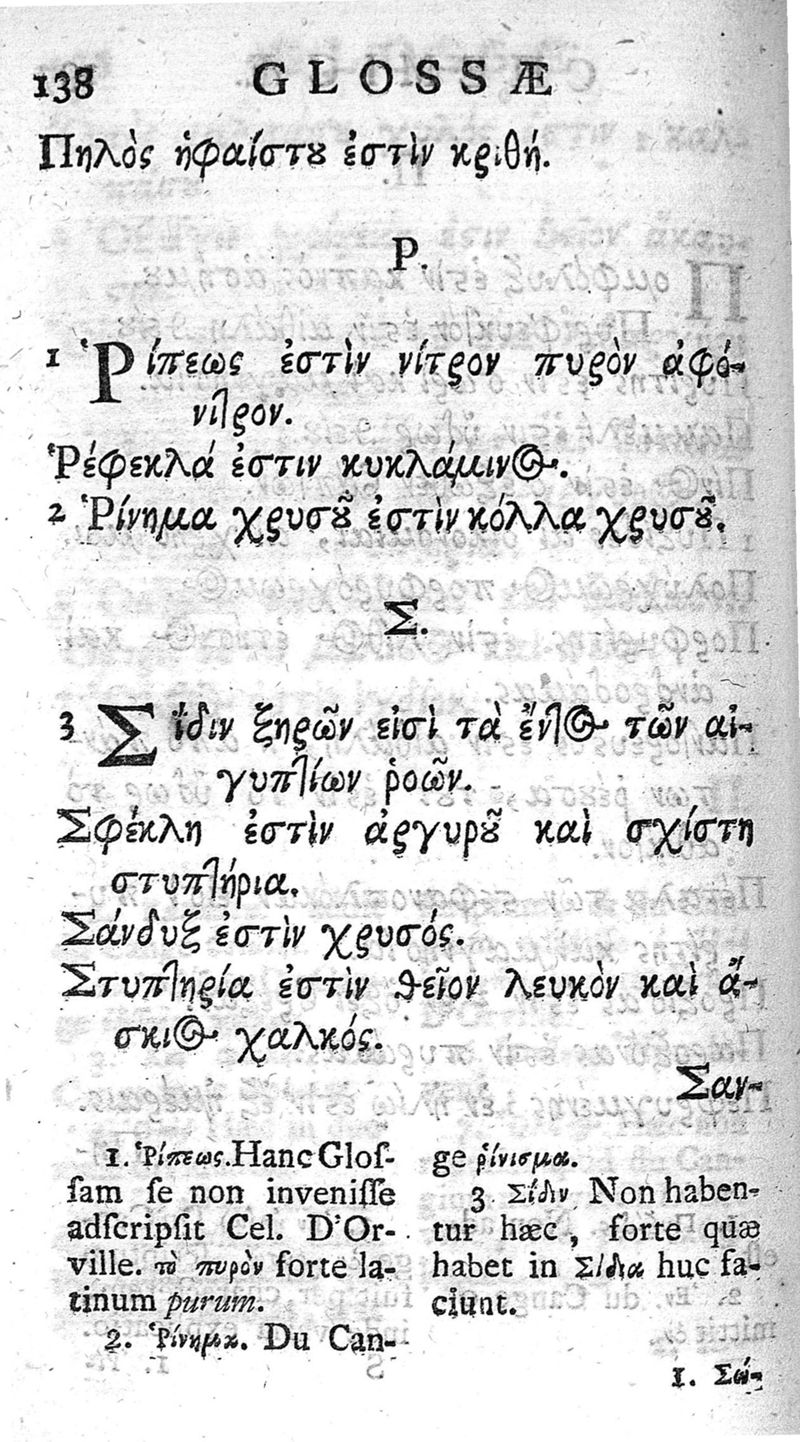 138 GLOSSÆ
Πηλὸς ἡφαίστȣ ἐστὶν κριθή.
Ρ.
1 Ῥίπεως ἐστὶν νίτρον πυρὸν ἀφό-
νιτρον.
Ῥέφεκλά ἐστιν κυκλάμινος.
2 Ῥίνημα χρυσȣ͂ ἐστὶν κόλλα χρυσȣ͂.
Σ.
3 Σἴδιν ξηρῶν εἰσὶ τὰ ἔντος τῶν αἰ-
γυπτίων ῥοῶν.
Σφέκλη ἐστὶν ἀργυρȣ͂ καὶ σχίστη
στυπτήρια.
Σάνδυξ ἐστὶν χρυσός.
Στυπτηρία ἐστὶν θεῖον λευκὸν καὶ ἄ-
σκιος χαλκός.
Σαν-
1. Ῥίπεως. Hanc Gloſ-
ſam ſe non inveniſſe
adſcripſit Cel. D'Or-
ville. τὸ πυρὸν forte la-
tinum purum.
2. Ῥίνημα. Du Can-
ge ῥίνισμα.
3. Σίδιν Non haben-
tur hæc, forte quæ
habet in Σίδια huc fa-
ciunt.
1. Σώ-